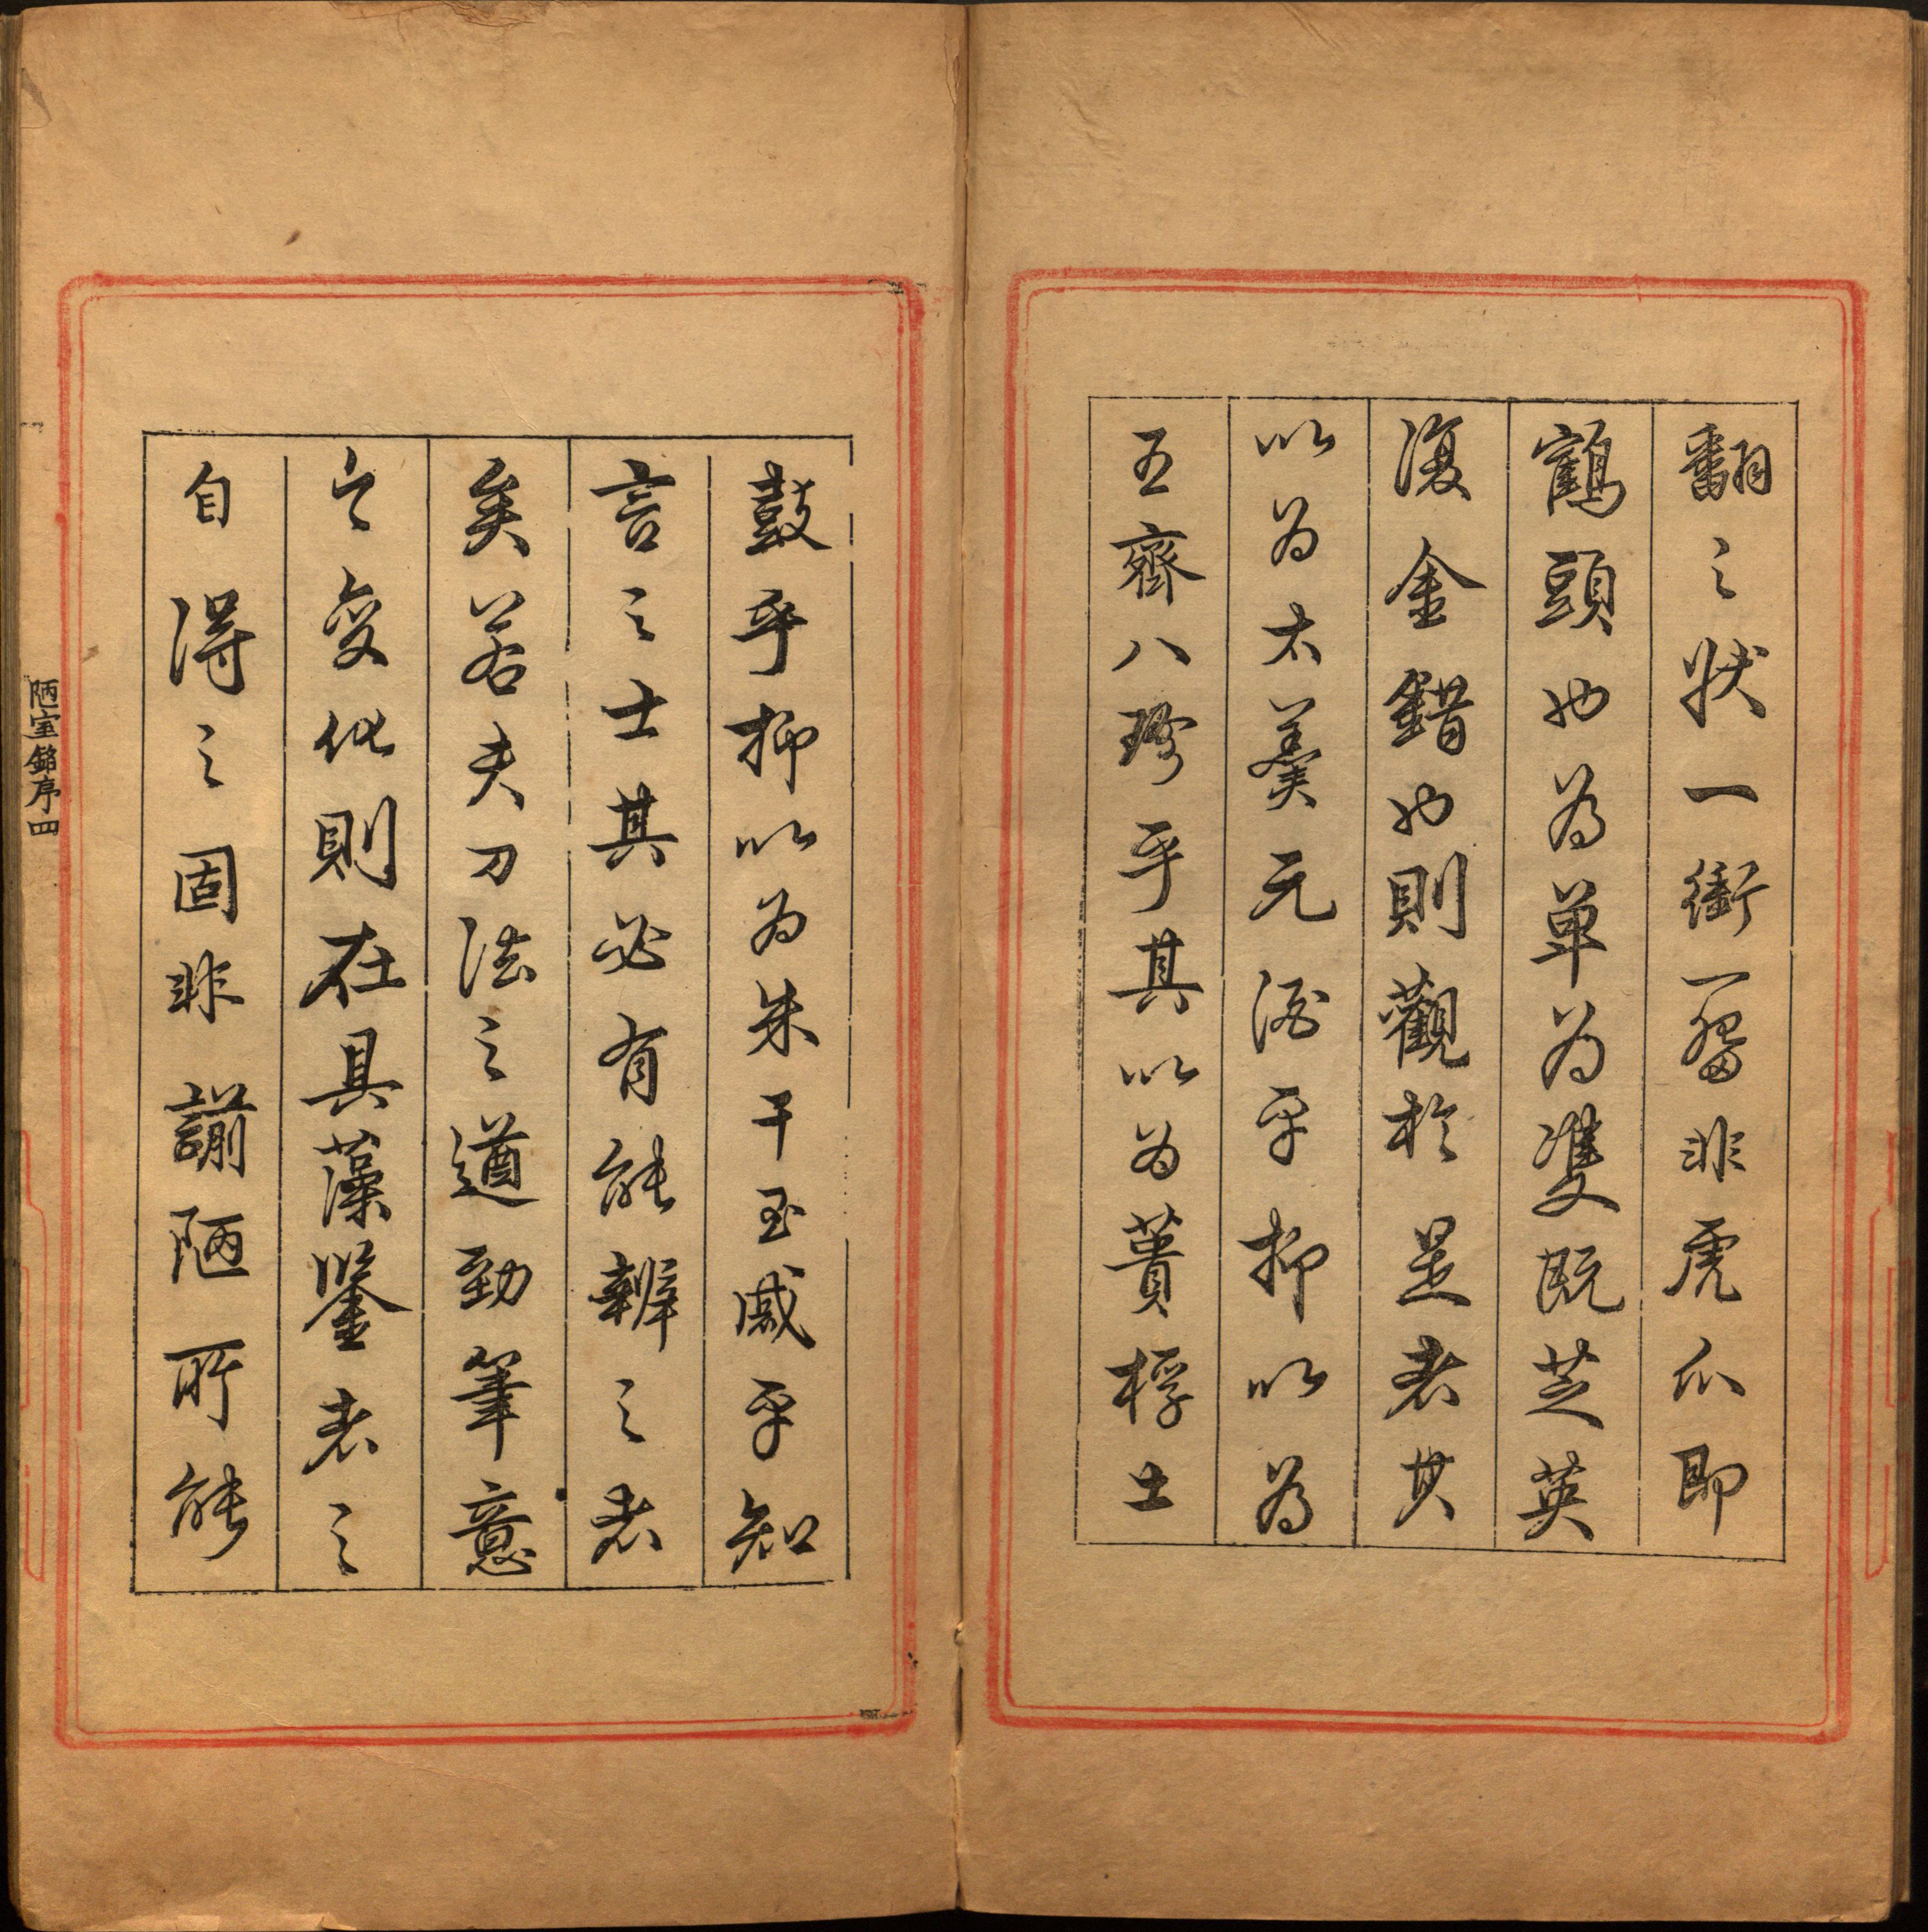 翻之狀一銜一罶非虎爪即
鶴頭也為單為雙既芝英
復金錯也則觀於是者其
以為太羹元酒乎抑以為
五齊八珍乎其以為蕢桴土
鼓乎抑以為朱干玉戚乎知
言之士其必有能辨之者
矣若夫刀法之遒勁筆意
之變化則在具藻鑒者之
自得之固非謭陋所能
陋室銘序四